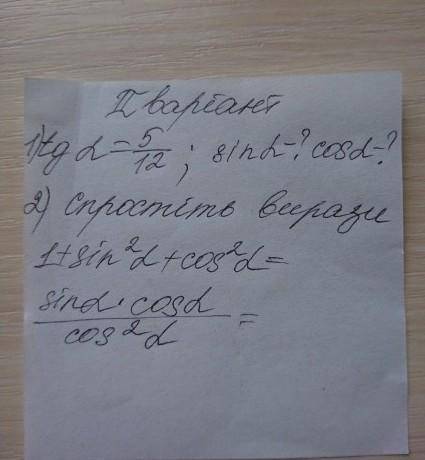 II варіант
1) tg α = 5/12 ; sin α - ? cos α - ?
2) Спростіть вирази
1 + sin²α + cos²α =
sin α · cos α / cos²α =